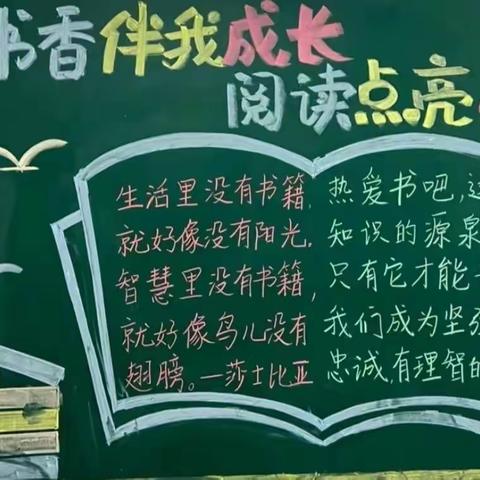 书香伴我成长
阅读点亮
生活里没有书籍,
就好像没有阳光.
智慧里没有书籍,
就好像鸟儿没有
翅膀。—莎士比亚
热爱书吧,这
知识的源泉
只有它才能
我们成为坚强
忠诚,有理智的